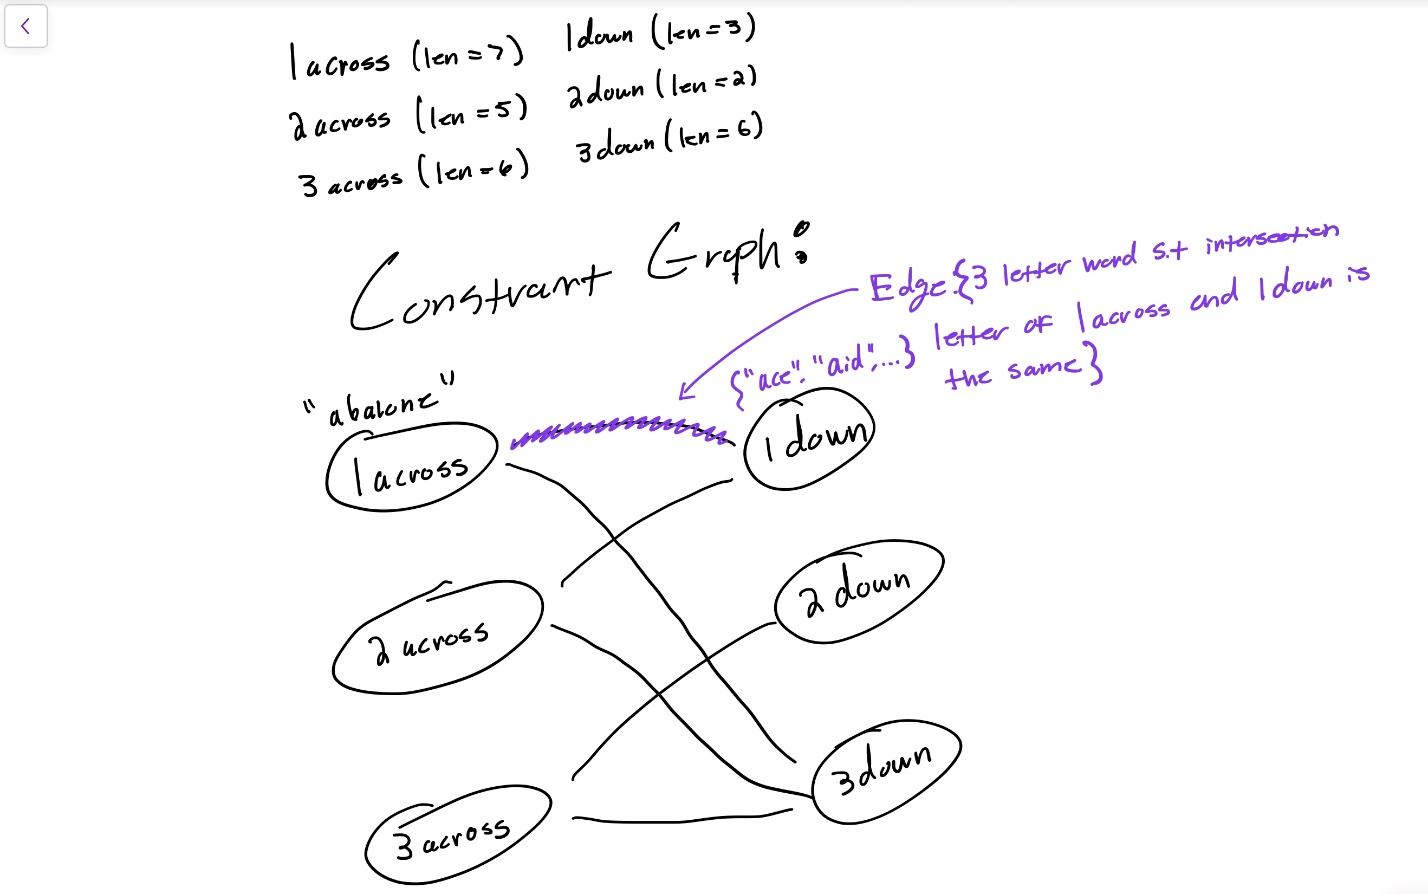 1 across (len = 7) 1 down (len = 3)
2 across (len = 5) 2 down (len = 2)
3 across (len = 6) 3 down (len = 6)
Constrant Graph:
Edge {3 letter word s.t intersection
letter of 1 across and 1 down is
the same}
{"ace", "aid", ...}
"abalone"
1 across
1 down
2 across
2 down
3 across
3 down